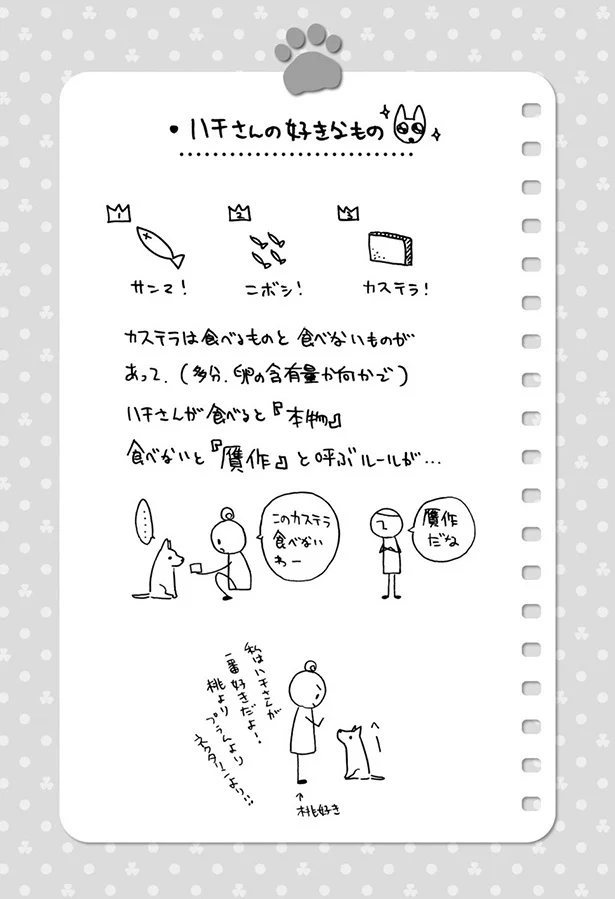 ・ハチさんの好きなもの
1
2
3
サンマ!
ニボシ!
カステラ!
カステラは食べるものと 食べないものが
あって.(多分.卵の含有量か何かで)
ハチさんが食べると『本物』
食べないと『贋作』と呼ぶルールが…
……
このカステラ
食べない
わー
贋作
だね
私はハチさんが
一番好きだよ!
桃よりプラムより
ネクタリンより…
へ
↑
桃好き